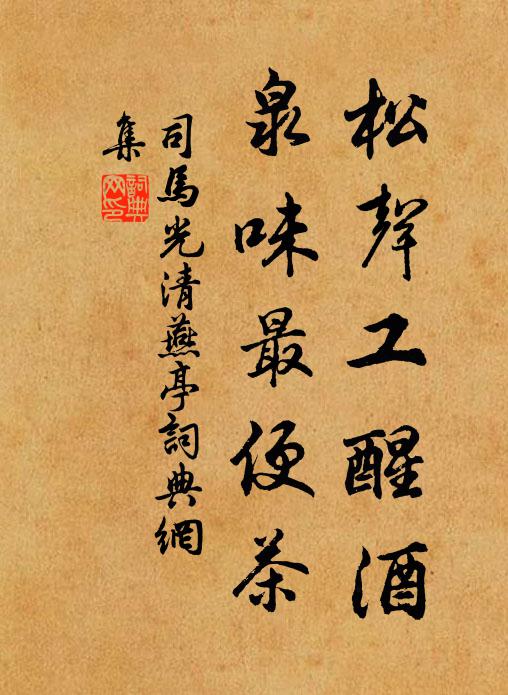 松聲工醒酒
泉味最便茶
司馬光清燕亭詞典網
集
詞典
网印